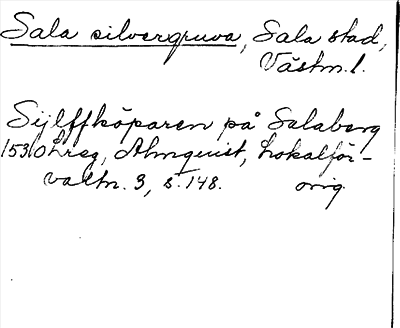 Sala silvergruva, Sala stad,
Västm. l.
Sijlffköparen på Salaberg
1530 Lreg, Almquist, Lokalför-
valtn. 3, s. 148. orig.